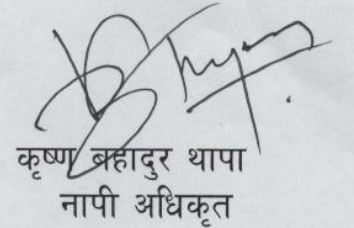 कृष्ण बहादुर थापा
नापी अधिकृत